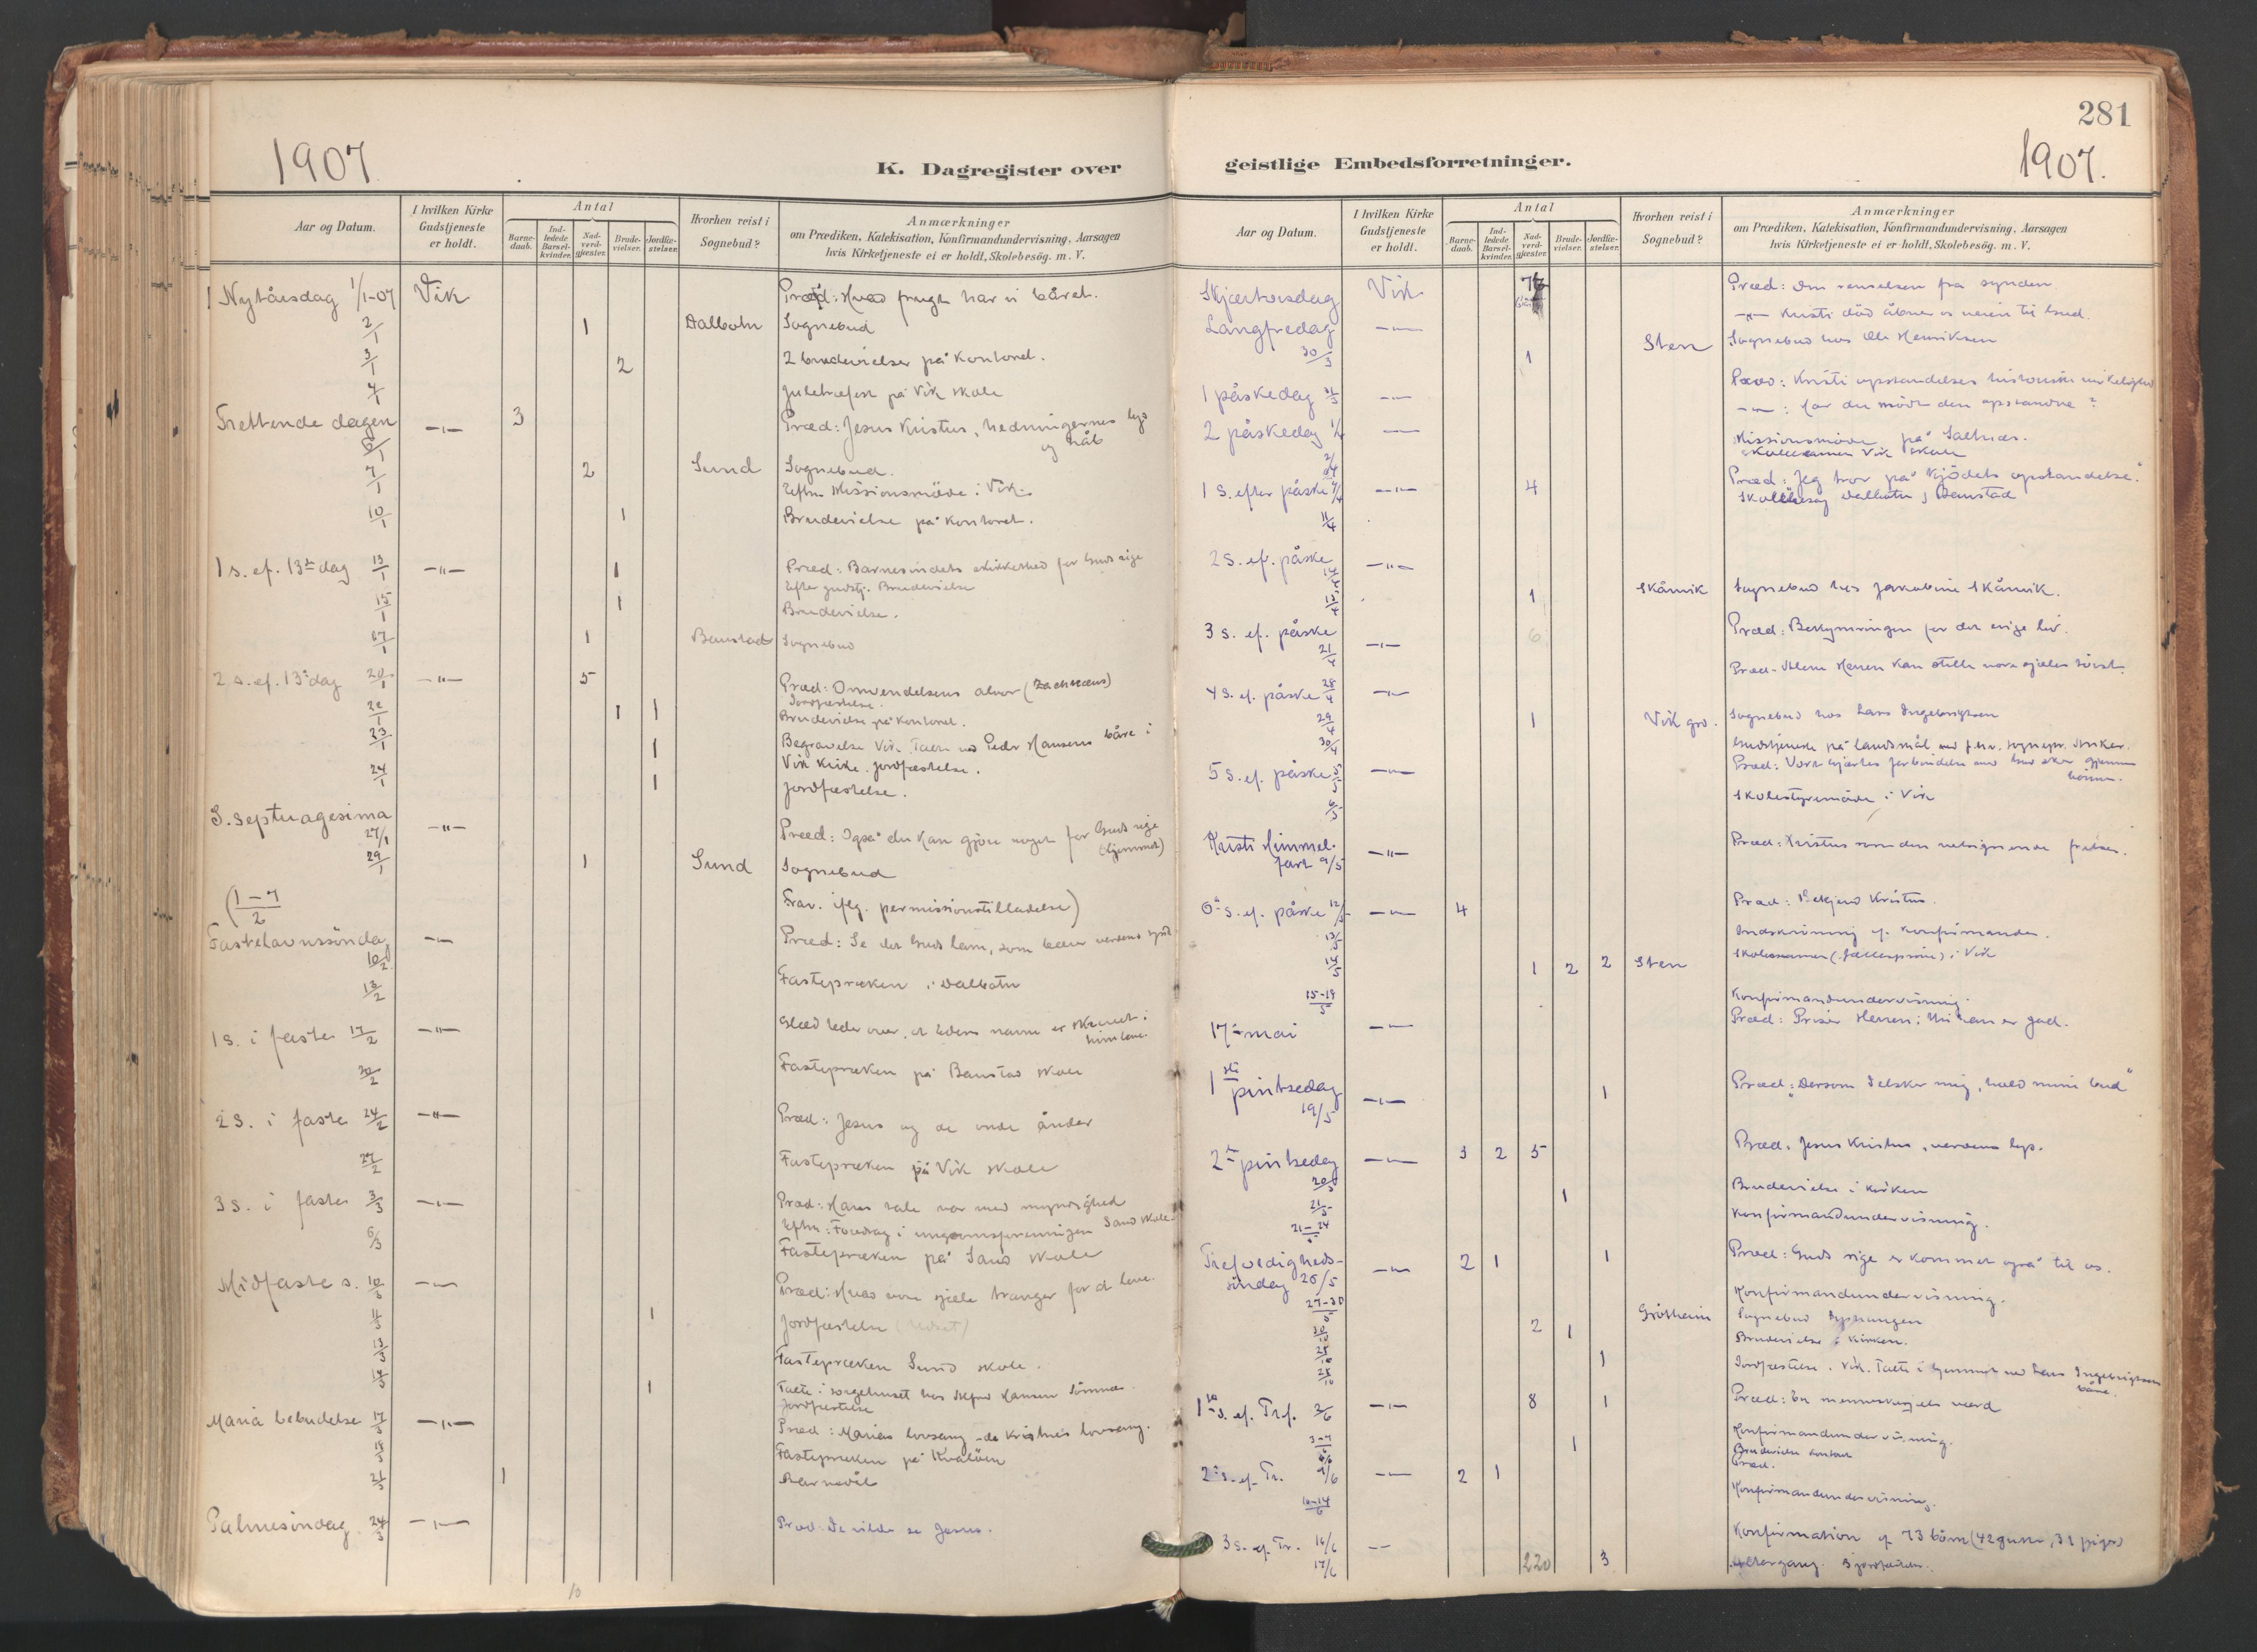 1907
K. Dagregister over
Aar og Datum.
I hvilken Kirke Gudstjeneste er holdt.
Antal
Barnedaab.
Indledede Barselkvinder.
Nadverdgjæster.
Brudevielser.
Jordfæstelser.
Hvorhen reist i Sognebud?
Anmærkninger
om Prædiken, Katekisation, Konfirmandundervisning, Aarsagen
hvis Kirketjeneste ei er holdt, Skolebesög. m. V.
Nytårsdag 1/1-07 Vik Præd: Hvad frugt har vi båret.
2/1 1 Dalbotn Sognebud
3/1 2 2 brudevielser på kontoret.
4/1 Juletræfest på Vik skole
Trettende dagen 6/1 -"- 3 Præd: Jesus Kristus, hedningernes lys
og håb
7/1 2 Sund Sognebud.
Eftm. Missionsmöde i Vik
10/1 1 Brudevielse på kontoret.
1 s. ef. 13de dag 13/1 -"- 1 Præd: Barnesindets skikkethed for Guds rige
Efter gudstj. Brudevielse
15/1 1 Brudevielse.
17/1 1 Baustad Sognebud
2 s. ef. 13 dag 20/1 -"- 5 Præd: Omvendelsens alvor (Zachæus)
Jordfæstelse.
22/1 1 1 Brudevielse på kontoret.
23/1 1 Begravelse Vik. Tale ved Peder Hansens båre i
Vik kirke. Jordfæstelse.
24/1 1 Jordfæstelse.
S. septuagesima 27/1 -"- Præd: Også du kan gjöre noget for Guds rige
(hjemmet)
29/1 1 Sund Sognebud
(1-7/2 Frav. iflg. permissionstilladelse)
Fastelavnssöndag 10/2 -"- Præd: Se det Guds lam, som bærer verdens synd
13/2 Fastepræken i Dalbotn
1 s. i faste 17/2 -"- Glæd eder over, at eders navne er skrevet i
himlene.
20/2 Fastepræken på Baustad skole
2 s. i faste 24/2 -"- Præd: Jesus og de onde ånder
27/2 Fastepræken på Vik skole
3 s. i faste 3/3 -"- Præd: Hans tale var med myndighed
Eftm: Foredrag i ungdomsforeningen Sand skole
6/3 Fastepræken på Sand skole
Midfaste s. 10/3 -"- Præd: Hvad vore sjæle trænger for at leve.
11/3 1 Jordfæstelse
13/3 Fastepræken Sund skole.
14/3 1 Tale i sorgehuset hos Hansen Sömnes.
Jordfæstelse
Maria bebudelse 17/3 -"- Præd: Marias lovsang - de kristnes lovsang.
18/3 Fastepræken på Kvalöen
21/3 1 Barnedåb
Palmesöndag 24/3 -"- Præd: De vilde se Jesus.
10
281
1907.
geistlige Embedsforretninger.
Aar og Datum.
I hvilken Kirke Gudstjeneste er holdt.
Antal
Barnedaab.
Indledede Barselkvinder.
Nadverdgjæster.
Brudevielser.
Jordfæstelser.
Hvorhen reist i Sognebud?
Anmærkninger
om Prædiken, Katekisation, Konfirmandundervisning, Aarsagen
hvis Kirketjeneste ei er holdt, Skolebesög. m. V.
Skjærtorsdag Vik Præd: Om renselsen fra synden
Langfredag -"- -"- Kristi död åbner os veien til Gud.
30/3 1 Sten Sognebud hos Ole Henriksen
1 påskedag 31/3 -"- Præd: Kristi opstandelses historiske virkelighed
2 påskedag 1/4 -"- -"-: Har du mödt den opstandne?
2/4 Missionsmöde på Salhus.
Skoleexamen Vik skole
1 s. efter påske 7/4 -"- 4 Præd: "Jeg tror på kjödets opstandelse."
11/4 Skolebesög Dalbotn, Baustad
2 s. ef. påske 14/4 -"-
15/4 1 Skårvik Sognebud hos Jakobine Skårvik.
3 s. ef. påske 21/4 -"- 6 Præd: Bekymringen for det evige liv.
4 s. ef. påske 28/4 -"- Præd. Alene Herren kan stille vore sjæles törst.
29/4 1 Vik grd. Sognebud hos Lars Ingebrigtsen
30/4 Gudstjeneste på landsmål ved
5 s. ef. påske 5/5 -"- Præd: Vort hjertes forbindelse med Gud sker gjennem
bönnen.
6/5 Skolestyremöde i Vik
Kristi Himmelfart 9/5 -"- Præd: Kristus som den velsignende frelser.
6te s. ef. påske 12/5 -"- 4 Præd: Bekjend Kristus.
13/5 Indskrivning af konfirmander.
14/5 1 2 2 Sten Skoleexamen i Vik
15-19/5 Konfirmandundervisning.
17de mai -"- Præd: Priser Herren; thi han er god.
1ste pintsedag 19/5 -"- 1 Præd: "Dersom I elsker mig, hold mine bud"
2den pintsedag 20/5 -"- 3 2 5 Præd. Jesus Kristus, verdens lys.
21/5 1 Brudevielse i kirken
21-24/5 Konfirmandundervisning.
Trefoldighedssöndag 26/5 -"- 2 1 1 Præd: Guds rige er kommet også til os.
27-30/5 Konfirmandundervisning.
2 Gråtheim Sognebud
1 Brudevielse i kirken.
1 Jordfæstelse. Vik. Tale i hjemmet ved Lars Ingebrigtsens
båre.
1ste s. ef. Tref. 2/6 -"- 8 1 Præd: En menneskesjæls værd
3-7/6 Konfirmandundervisning.
1 Brudevielse kontoret
2 s. ef. Tr. 9/6 -"- 2 1 Præd.
10-14/6 Konfirmandundervisning.
3 s. ef. Tr. 16/6 -"- Konfirmation af 73 börn (42 gutter, 31 piger)
17/6 220 3 Altergang. 3 jordfæstelser.